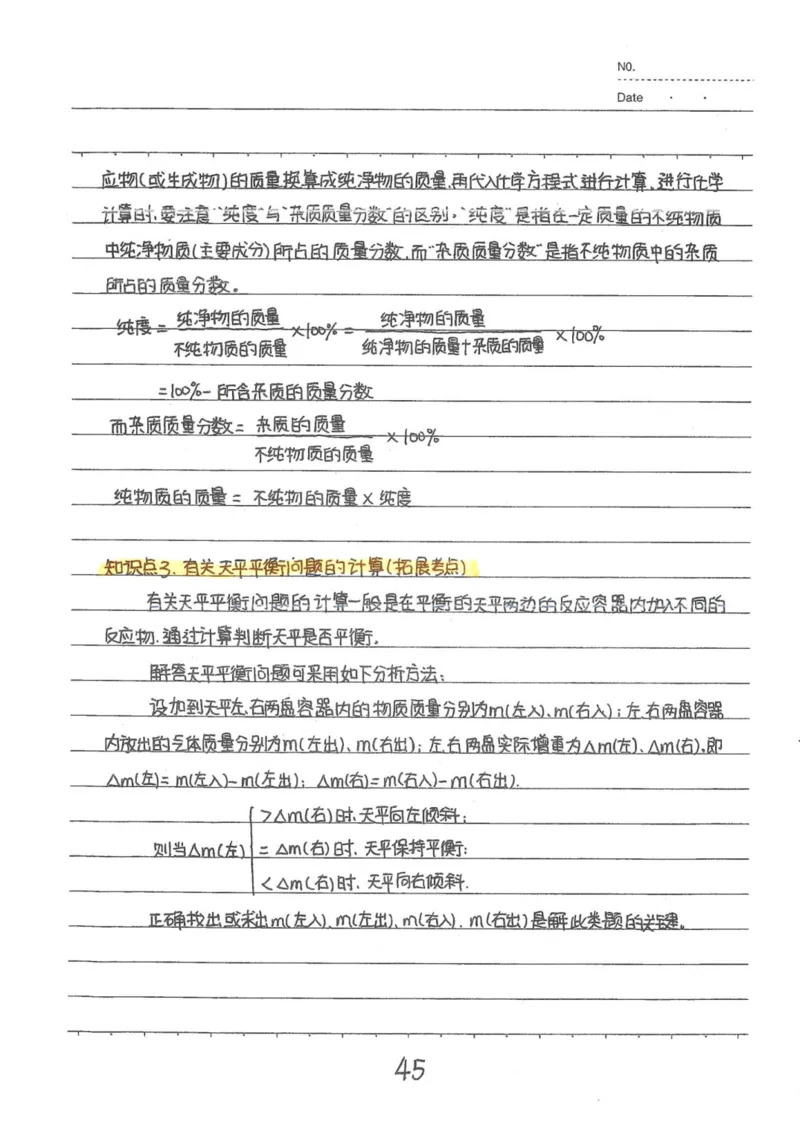 NO.
Date · ·
应物(或生成物)的质量换算成纯净物的质量,再代入化学方程式进行计算,进行化学
计算时,要注意“纯度”与“杂质质量分数”的区别,“纯度”是指在一定质量的不纯物质
中纯净物质(主要成分)所占的质量分数,而“杂质质量分数”是指不纯物质中的杂质
所占的质量分数。
纯度 = 纯净物的质量/不纯物质的质量 ×100% = 纯净物的质量/纯净物的质量+杂质的质量 ×100%
=100%-所含杂质的质量分数
而杂质质量分数 = 杂质的质量/不纯物质的质量 ×100%
纯物质的质量 = 不纯物的质量 × 纯度
知识点3. 有关天平平衡问题的计算(拓展考点)
有关天平平衡问题的计算一般是在平衡的天平两边的反应容器内加入不同的
反应物.通过计算判断天平是否平衡.
解答天平平衡问题可采用如下分析方法:
设加到天平左、右两盘容器内的物质质量分别为m(左入)、m(右入);左.右两盘容器
内放出的气体质量分别为m(左出)、m(右出);左.右两盘实际增重为Δm(左)、Δm(右).即
Δm(左)= m(左入)-m(左出); Δm(右)=m(右入)-m(右出).
>Δm(右)时.天平向左倾斜;
则当Δm(左) = Δm(右)时.天平保持平衡;
<Δm(右)时.天平向右倾斜.
正确找出或求出m(左入)、m(左出)、m(右入)、m(右出)是解此类题的关键。
45